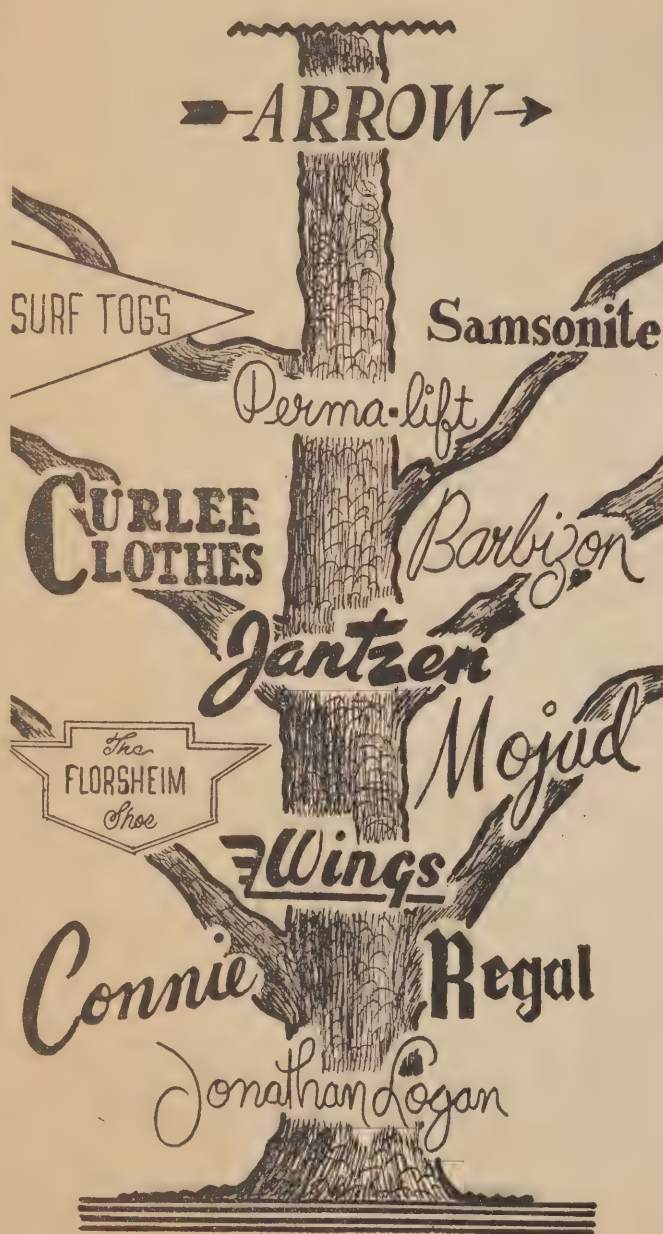 ARROW
SURF TOGS
Samsonite
Perma-lift
CURLEE
CLOTHES
Barbizon
Jantzen
Mojud
The
FLORSHEIM
Shoe
Wings
Connie
Regal
Jonathan Logan